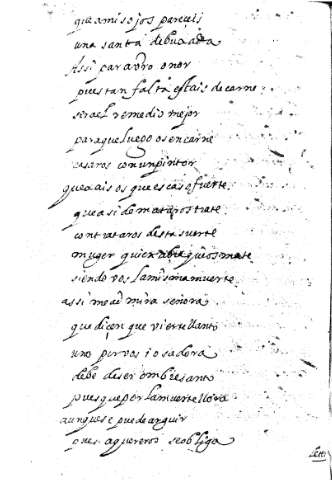 que a mis ojos pareçeis
una santa debuxada
Assi para vro onor
pues tan falta estais de carne
sera el remedio mejor
para que luego os encarne
casaros con un pintor
quexais os que es caso fuerte
que asi de mataros trate
contrataros desta suerte
muger quien abia que os mate
siendo vos la misma muerte
assi me admira señora
que diçen que vierte llanto
uno por vos i os adora
debe de ser ombre santo
pues que por la muerte llora
aunque se puede arguir
pues a quereros se obliga